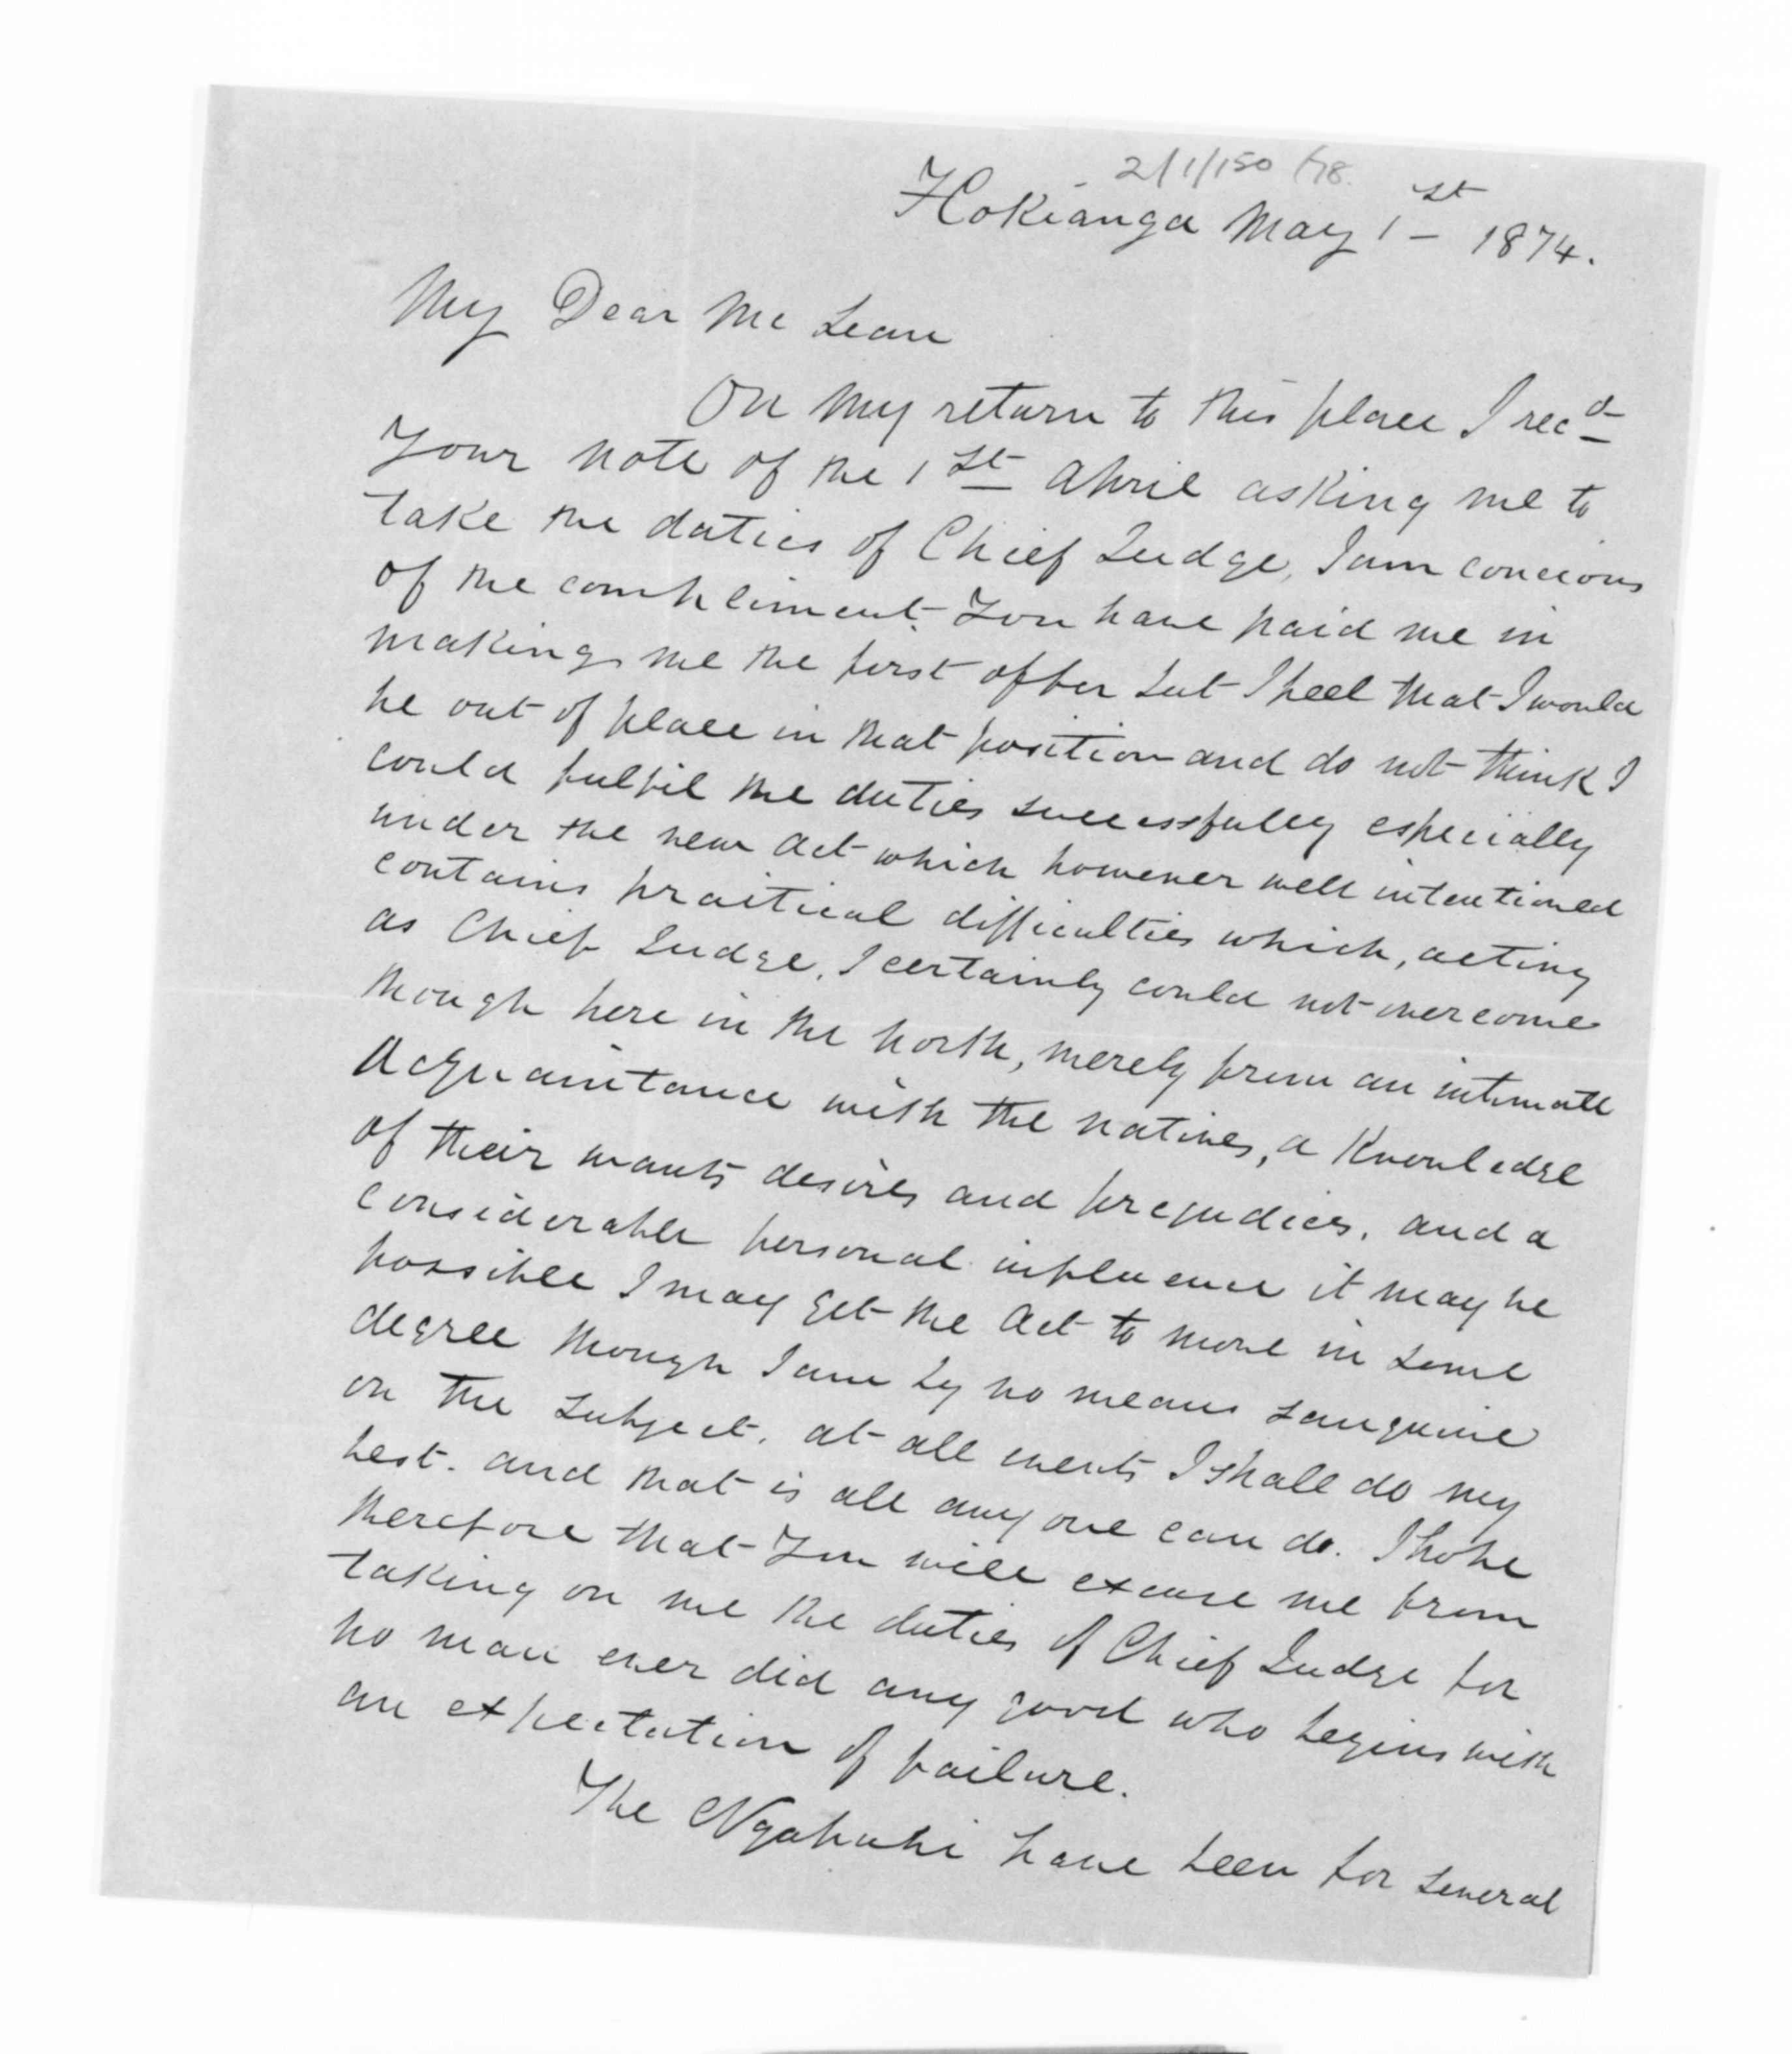 2/1/150 /78.
Hokianga May 1st 1874.
My Dear Mc Lean
On my return to this place I recd
Your note of the 1st April asking me to
take the duties of Chief Judge, I am concious
of the compliment You have paid me in
making me the first offer but I feel that I would
be out of place in that position and do not think I
could fulfil the duties successfully especially
under the new Act which however well intentioned
contains practical difficulties which, acting
as Chief Judge, I certainly could not overcome
though here in the north, merely from an intimate
Acquaintance with the natives, a Knowledge
of their wants desires and prejudices, and a
considerable personal influence it may be
possible I may get the Act to move in some
degree though I am by no means sanguine
on the subject, at all events I shall do my
best. and that is all any one can do. I hope
therefore that You will excuse me from
taking on me the duties of Chief Judge for
no man ever did any good who begins with
an expectation of failure.
The Ngapuhi have been for several